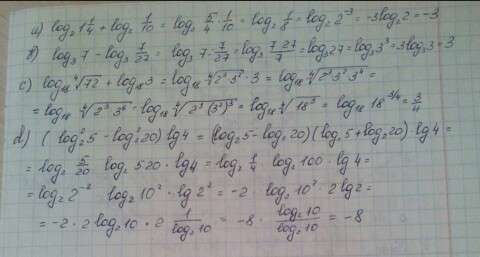 a) log₂ 1 1/4 + log₂ 1/10 = log₂ 5/4 · 1/10 = log₂ 1/8 = log₂ 2⁻³ = -3log₂2 = -3
b) log₃ 7 - log₃ 7/27 = log₃ 7 : 7/27 = log₃ 7·27/7 = log₃ 27 = log₃ 3³ = 3log₃3 = 3
c) log₁₈ ⁴√72 + log₁₈ 3 = log₁₈ ⁴√2³3² · 3 = log₁₈ ⁴√2³3²3⁴ =
= log₁₈ ⁴√2³3⁶ = log₁₈ ⁴√2³(3²)³ = log₁₈ ⁴√18³ = log₁₈ 18^3/4 = 3/4
d) (log₂²5 - log₂²20) lg4 = (log₂5 - log₂20)(log₂5 + log₂20) · lg4 =
= log₂ 5/20 · log₂ 5·20 · lg4 = log₂ 1/4 · log₂ 100 · lg4 =
= log₂ 2⁻² · log₂ 10² · lg 2² = -2 · log₂ 10² · 2 lg2 =
= -2 · 2 log₂ 10 · 2 1/log₂10 = -8 · log₂10/log₂10 = -8